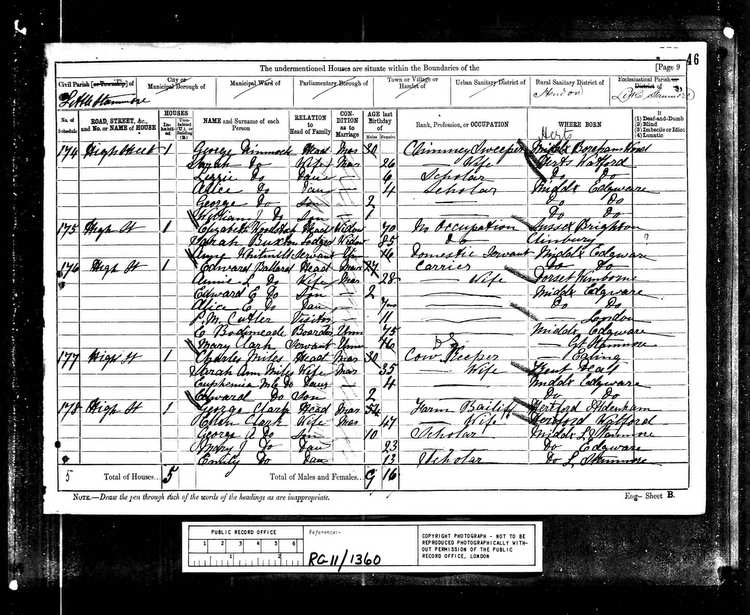 The undermentioned Houses are situate within the Boundaries of the
[Page 9
46
Civil Parish [or Township] of
City or Municipal Borough of
Municipal Ward of
Parliamentary Borough of
Town or Village or Hamlet of
Urban Sanitary District of
Rural Sanitary District of
Ecclesiastical Parish or District of
Little Stanmore
Hendon
Little Stanmore
No. of Schedule
ROAD, STREET, &c., and No. or NAME of HOUSE
HOUSES
Inhabited
Uninhabited (U.), or Building (B.)
NAME and Surname of each Person
RELATION to Head of Family
CONDITION as to Marriage
AGE last Birthday of
Males
Females
Rank, Profession, or OCCUPATION
WHERE BORN
(1) Deaf-and-Dumb
(2) Blind
(3) Imbecile or Idiot
(4) Lunatic
Herts
174 High Street 1 George Dimmock Head Mar 30 Chimney Sweeper Middx
Sarah Do Wife Mar 26 Wife Herts Watford
Lizzie Do Dau 6 Scholar Do Do
Alice Do Dau 4 Scholar Middx Edgware
George Do Son 2 Do Do
William J Do Son 1 Do Do
175 High St 1 Elizabeth Head Widow 70 No Occupation Sussex Brighton
Sarah Buxton Lodger Widow 85 Do
Servant Un 16 Domestic Servant Middx Edgware
176 High St 1 Edward Ballard Head Mar 27 Carrier Do Do
Annie L Do Wife Mar 28 Wife Dorset Wimborne
Edward E Do Son 2 Middx Edgware
Alice E Do Dau Do Do
L. M. Cutler Visitor 11 London
E Bodimeade Boarder Unm 75 Middx Edgware
Mary Clark Servant Unm 46 Gt Stanmore
177 High St 1 Charles Miles Head Mar 30 Cow Keeper Ealing
Sarah Ann Miles Wife Mar 35 Wife Kent Deal
Euphemia Do Dau 4 Middx Edgware
Edward Do Son 2 Do Do
178 High St 1 George Clark Head Mar 54 Farm Bailiff Hertford Aldenham
Clark Wife Mar 47 Wife Hertford Watford
George Do Son 10 Scholar Middx L Stanmore
Mary J Do Dau 23 Do Edgware
Emily Do Dau 13 Scholar Do L Stanmore
5 Total of Houses... 5 Total of Males and Females... 9 16
NOTE.—Draw the pen through such of the words of the headings as are inappropriate.
Eng—Sheet B.
PUBLIC RECORD OFFICE
1 2 3 4 5 6
1 2
Reference:-
RG 11/1360
COPYRIGHT PHOTOGRAPH - NOT TO BE REPRODUCED PHOTOGRAPHICALLY WITHOUT PERMISSION OF THE PUBLIC RECORD OFFICE, LONDON